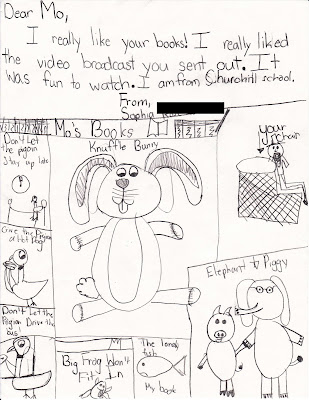 Dear Mo,
I really like your books! I really liked
the video broadcast you sent out. It
was fun to watch. I am from Churchill school.
From,
Sophia
Mo's Books
Don't Let
the pigoin
Stay up late
Knuffle Bunny
your
chair
Give the Pigoin
a Hot Dog!
Elephant & Piggy
Don't Let the
Pigion Drive the
bus!
Big Frog Won't
Fit In
The lonely
fish
My book